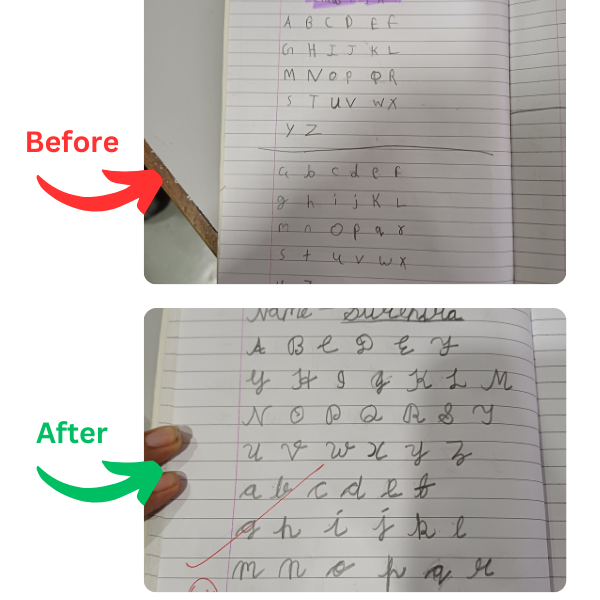 A B C D E F
G H I J K L
M N O P Q R
S T U V W X
Y Z
Before
a b c d e f
g h i j K L
m n O p q r
s t u v w x
Name - Surendra
A B C D E F
G H I J K L M
N O P Q R S T
After
U V W X Y Z
a b c d e f
g h i j k l
m n o p q r